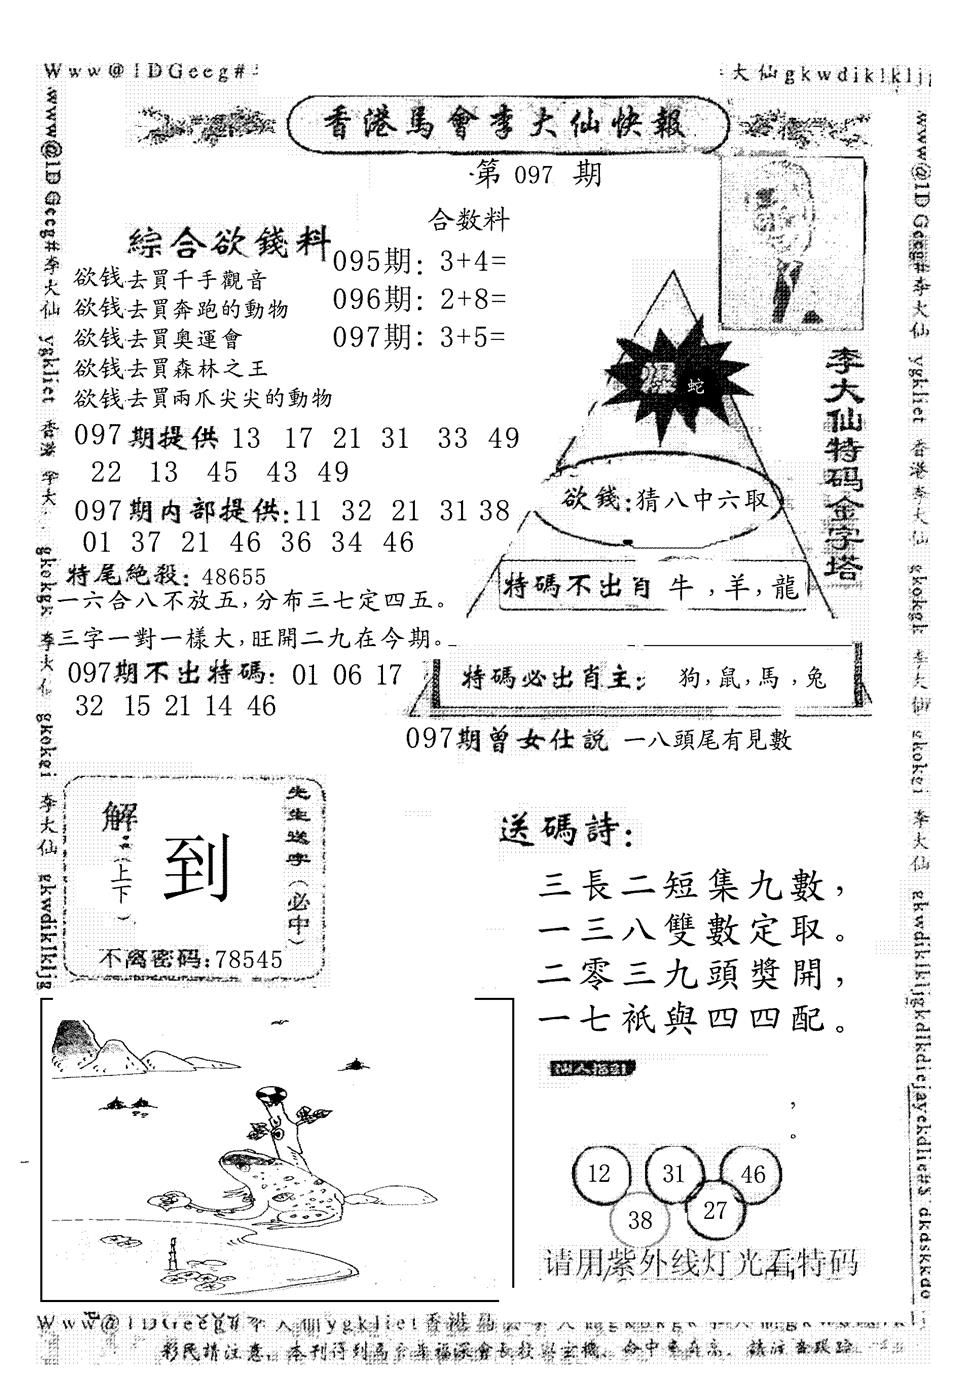 Www@1DGeeg#
大仙gkwdiklkljg
香港馬會李大仙快報
第 097 期
綜合欲錢料
合数料
欲钱去買千手觀音
欲钱去買奔跑的動物
欲钱去買奧運會
欲钱去買森林之王
欲钱去買兩爪尖尖的動物
095期: 3+4=
096期: 2+8=
097期: 3+5=
爆 蛇
李大仙特码金字塔
097期提供 13 17 21 31 33 49
22 13 45 43 49
欲錢:猜八中六取
097期内部提供:11 32 21 31 38
01 37 21 46 36 34 46
特碼不出肖 牛,羊,龍
特尾絶殺: 48655
一六合八不放五,分布三七定四五。
三字一對一樣大,旺開二九在今期。
097期不出特碼: 01 06 17
32 15 21 14 46
特碼必出肖主: 狗,鼠,馬,兔
097期曾女仕説 一八頭尾有見數
先生送字(必中)
解:(上下)
到
不离密码:78545
送碼詩:
三長二短集九數,
一三八雙數定取。
二零三九頭獎開,
一七衹與四四配。
仙人指引
,
。
12 31 46
38 27
请用紫外线灯光看特码
www@1DGeeg#李大仙 ygkliet 香港 李大 gkokgk 李大仙 gkokgi 李大仙 gkwdiklkljg
www@1DGeeg#李大仙 ygkliet 香港李大仙 gkokgk 李大仙 gkokgi 李大仙
彩民請注意,本刊得到